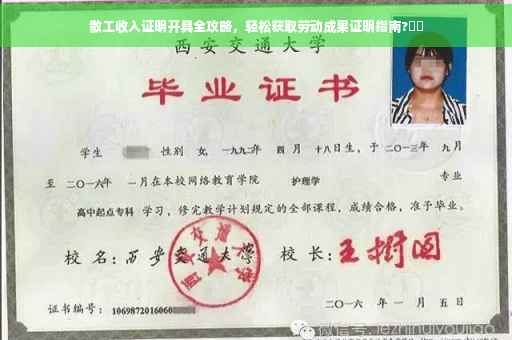 散工收入证明开具全攻略，轻松获取劳动成果证明指南?
西安交通大学
毕业证书
学生 性别 女，一九九二年 四月 十八日生，于二〇一三年 九月
至 二〇一六年 一月在本校网络教育学院 护理学 专业
高中起点专科 学习，修完教学计划规定的全部课程，成绩合格，准予毕业。
校名：西安交通大学 校长：王树国
西安交通大学
证书编号：1069872016060
二〇一六年一月五日
微信号: jezhihuiyoujiao